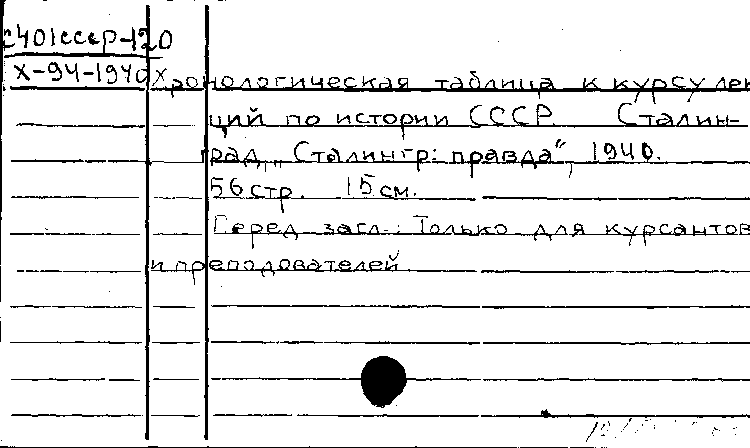 С401СССР-120
Х-94-1940
Хронологическая таблица к курсу лек
ций по истории СССР. Сталин-
град, „Сталингр: правда", 1940.
56 стр. 15 см.
Перед загл.: Только для курсантов
и преподователей.